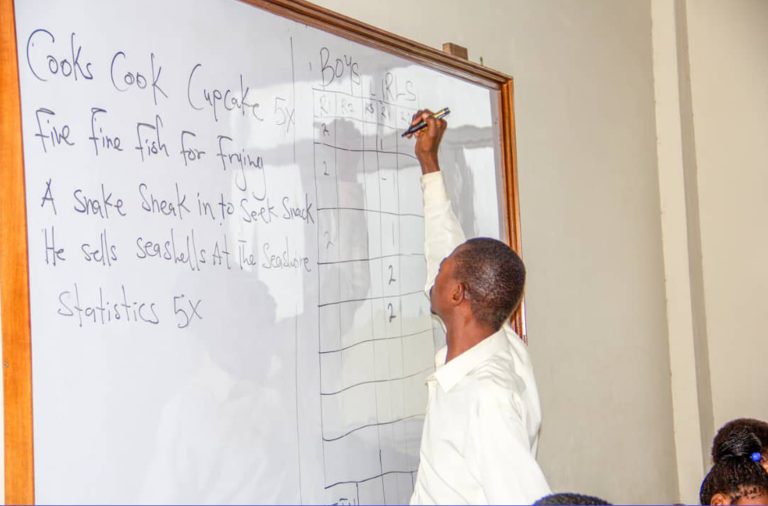 Cooks Cook Cupcake 5X
Five Fine Fish for Frying
A snake Sneak in to Seek Snack
He sells seashells At The Seashore
Statistics 5X
Boys
RLS
R1 R2 R3 R1
2
1
2
2
1
2
2